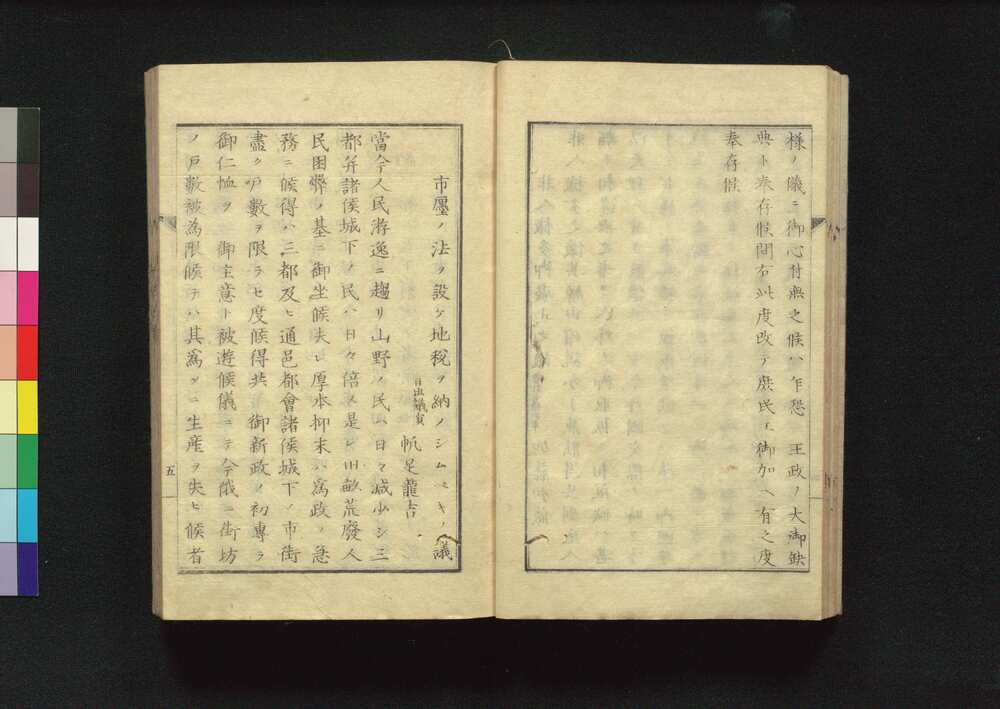 様ノ儀ニ御心付無之候ハ乍恐　王政ノ大御缺
典ト奉存候間右此度改テ庶民ニ御加ヘ有之度
奉存候
市廛ノ法ヲ設ケ地税ヲ納ノシムヘキノ議
日出議員　帆足龍吉
當今人民游逸ニ趨リ山野ノ民ハ日々減少シ三
都并諸侯城下ノ民ハ日々倍ス是レ田畝荒廢人
民困弊ノ基ニ御坐候夫レ厚本抑末ハ為政ノ急
務ニ候得ハ三都及ヒ通邑都會諸侯城下ノ市街
盡ク戸數ヲ限ラセ度候得共　御新政ノ初專ラ
御仁恤ヲ　御主意ト被遊候儀ニテ今俄ニ街坊
ノ戸數被為限候テハ其為メニ生産ヲ失ヒ候者
五